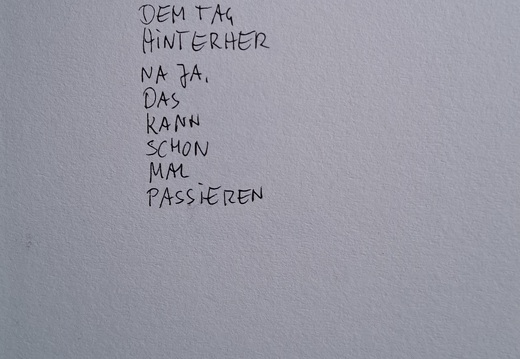 DEM TAG
HINTERHER
NA JA,
DAS
KANN
SCHON
MAL
PASSIEREN